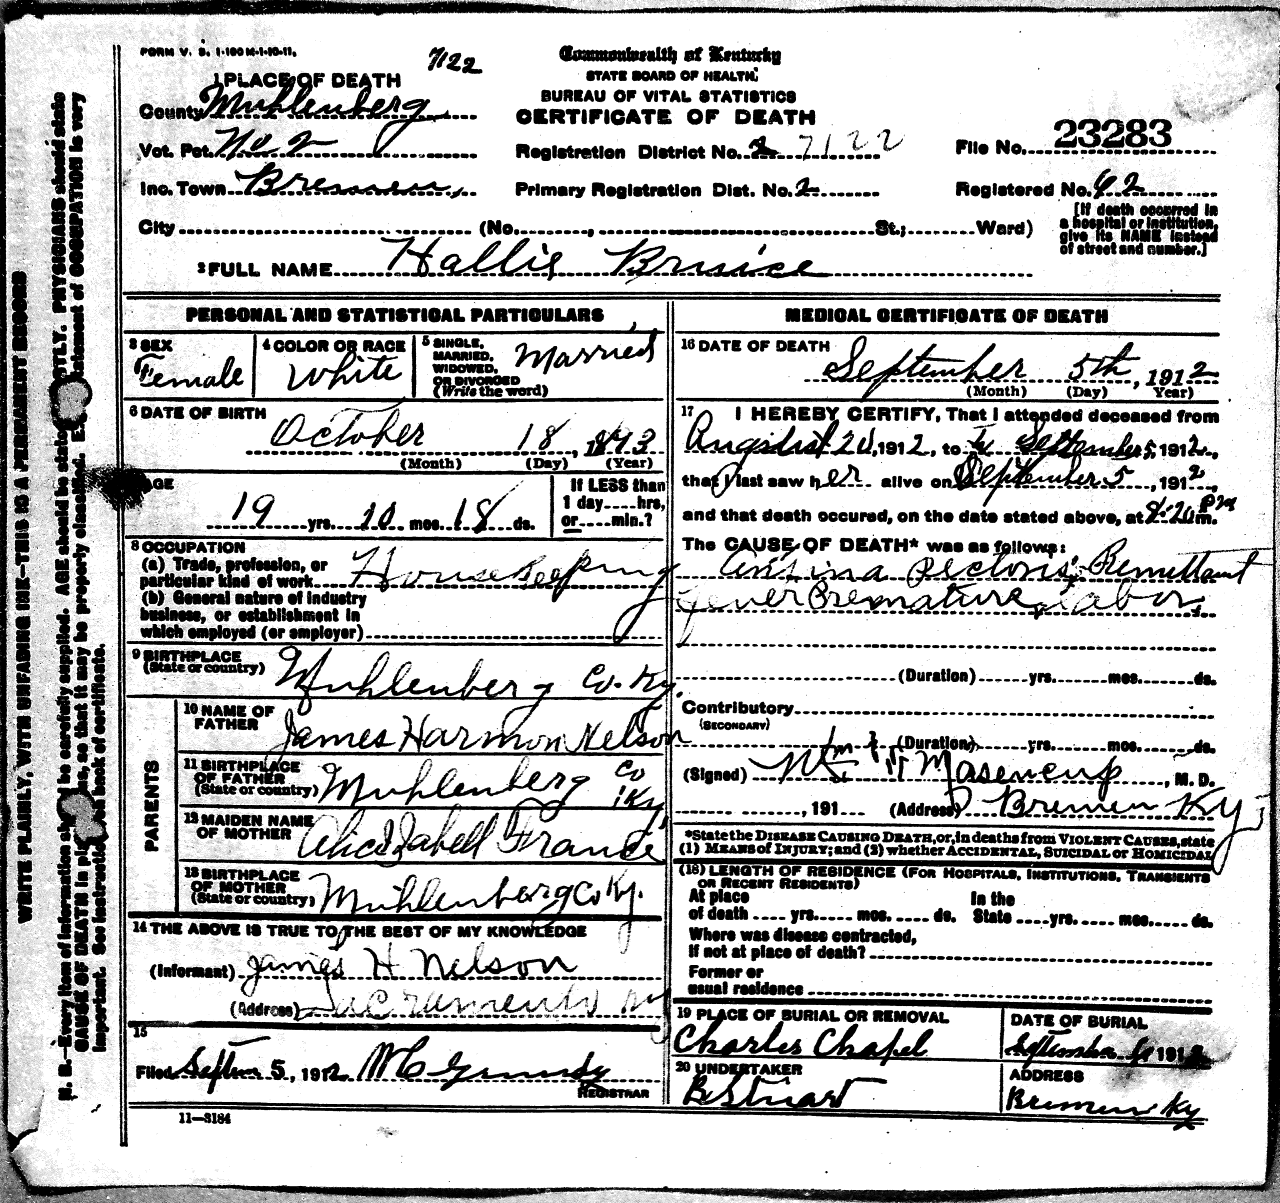 FORM V. S. 1-100 M-1-10-11.
7122
Commonwealth of Kentucky
STATE BOARD OF HEALTH.
BUREAU OF VITAL STATISTICS
CERTIFICATE OF DEATH
1 PLACE OF DEATH
County Muhlenberg
Vot. Pct. No 2
Registration District No. 2 7122
File No. 23283
Inc. Town Bremen,
Primary Registration Dist. No. 2
Registered No. 62
City (No. , St.; Ward)
[If death occurred in a hospital or institution, give its NAME instead of street and number.]
2 FULL NAME Hallie
PERSONAL AND STATISTICAL PARTICULARS
3 SEX Female
4 COLOR OR RACE White
5 SINGLE, MARRIED, WIDOWED, OR DIVORCED (Write the word) Married
6 DATE OF BIRTH
October 18, 1893
(Month) (Day) (Year)
AGE
19 yrs. 10 mos. 18 ds.
If LESS than 1 day hrs, or min.?
8 OCCUPATION
(a) Trade, profession, or particular kind of work Housekeeping
(b) General nature of industry business, or establishment in which employed (or employer)
9 BIRTHPLACE (State or country) Muhlenberg Co. Ky.
PARENTS
10 NAME OF FATHER James Harmon Nelson
11 BIRTHPLACE OF FATHER (State or country) Muhlenberg Co Ky
12 MAIDEN NAME OF MOTHER
13 BIRTHPLACE OF MOTHER (State or country) Muhlenberg Co Ky.
14 THE ABOVE IS TRUE TO THE BEST OF MY KNOWLEDGE
(Informant) James H Nelson
(Address) Sacramento Ky
15
Filed 5, 1912 REGISTRAR
11—3184
MEDICAL CERTIFICATE OF DEATH
16 DATE OF DEATH
September 5th, 1912
(Month) (Day) Year)
17 I HEREBY CERTIFY, That I attended deceased from
August 20, 1912, to September 5, 1912,
that I last saw her alive on September 5, 1912,
and that death occured, on the date stated above, at 8:20 Pm m.
The CAUSE OF DEATH* was as follows:
Angina Pectoris Remittant
fever Premature labor
(Duration) yrs. mos. ds.
Contributory
(SECONDARY)
(Duration) yrs. mos. ds.
(Signed) Wm H Masencup, M. D.
, 191 (Address) Bremen Ky
*State the DISEASE CAUSING DEATH, or, in deaths from VIOLENT CAUSES, state
(1) MEANS OF INJURY; and (2) whether ACCIDENTAL, SUICIDAL or HOMICIDAL
(18) LENGTH OF RESIDENCE (FOR HOSPITALS, INSTITUTIONS, TRANSIENTS OR RECENT RESIDENTS)
At place of death yrs. mos. ds. In the State yrs. mos. ds.
Where was disease contracted,
If not at place of death?
Former or
usual residence
19 PLACE OF BURIAL OR REMOVAL
Charles Chapel
DATE OF BURIAL
September 6, 1912
20 UNDERTAKER
B Stuart
ADDRESS
Bremen Ky
WRITE PLAINLY, WITH UNFADING INK—THIS IS A PERMANENT RECORD
N. B.—Every item of information should be carefully supplied. AGE should be stated EXACTLY. PHYSICIANS should state
CAUSE OF DEATH in plain terms, so that it may be properly classified. Exact statement of OCCUPATION is very
important. See instructions on back of certificate.